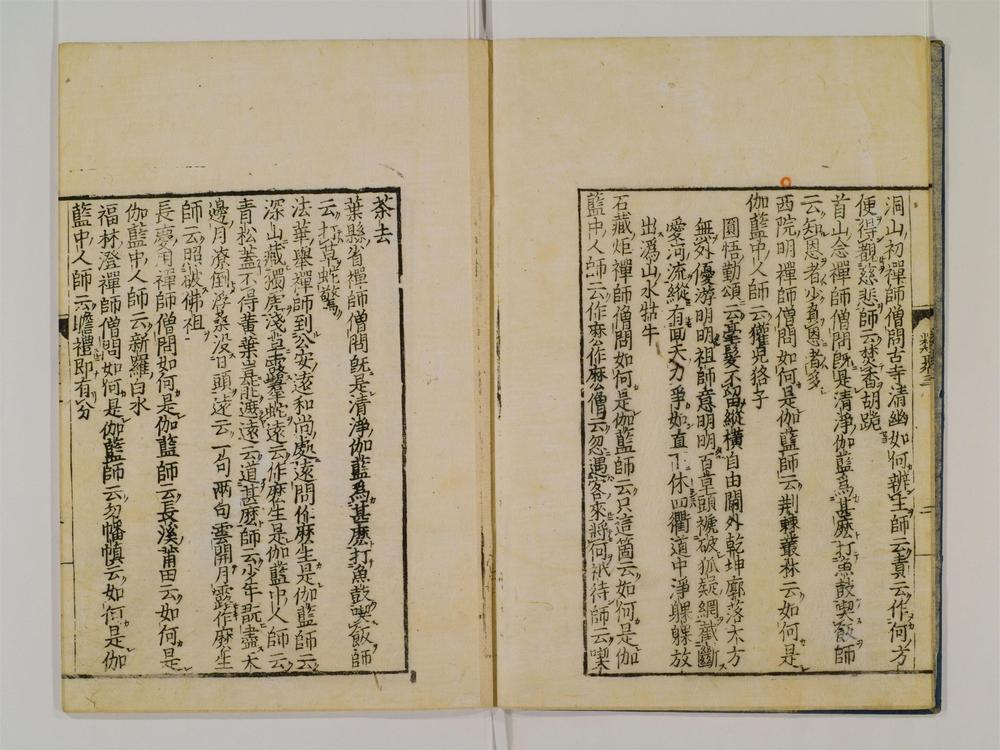 洞山初禪師僧問古寺清幽如何辨主師云責云作何方
便得觀慈悲師云焚香胡跪
首山念禪師僧問既是清淨伽藍爲甚麽打魚鼓喫飯師
云知恩者少負恩者多
西院明禪師僧問如何是伽藍師云荆棘叢林云如何是
伽藍中人師云獾兒狢子
圜悟勤頌云毫髮不留縱橫自由閫外乾坤廓落大方
無外優游明明祖師意明明百草頭襯破狐疑網截斷
愛河流縱有回天力爭如直下休四衢道中淨躶躶放
出溈山水牯牛
石藏炬禪師僧問如何是伽藍師云只這箇云如何是伽
藍中人師云作麽作麽僧云忽遇客來將何祇待師云喫
類聚三
二
茶去
葉縣省禪師僧問旣是清淨伽藍爲甚麽打魚鼓喫飯師
云打草蛇驚
法華舉禪師到公安遠和尚處遠問作麽生是伽藍師云
深山藏獨虎淺草露羣蛇遠云作麽生是伽藍中人師云
青松蓋不得黄葉豈能遮遠云道甚麽師云少年翫盡天
邊月潦倒浮桑没日頭遠云一句兩句雲開月露作麽生
師云照破佛祖
長慶用禪師僧問如何是伽藍師云長溪莆田云如何是
伽藍中人師云新羅白水
福林澄禪師僧問如何是伽藍師云勿幡幀云如何是伽
藍中人師云瞻禮即有分